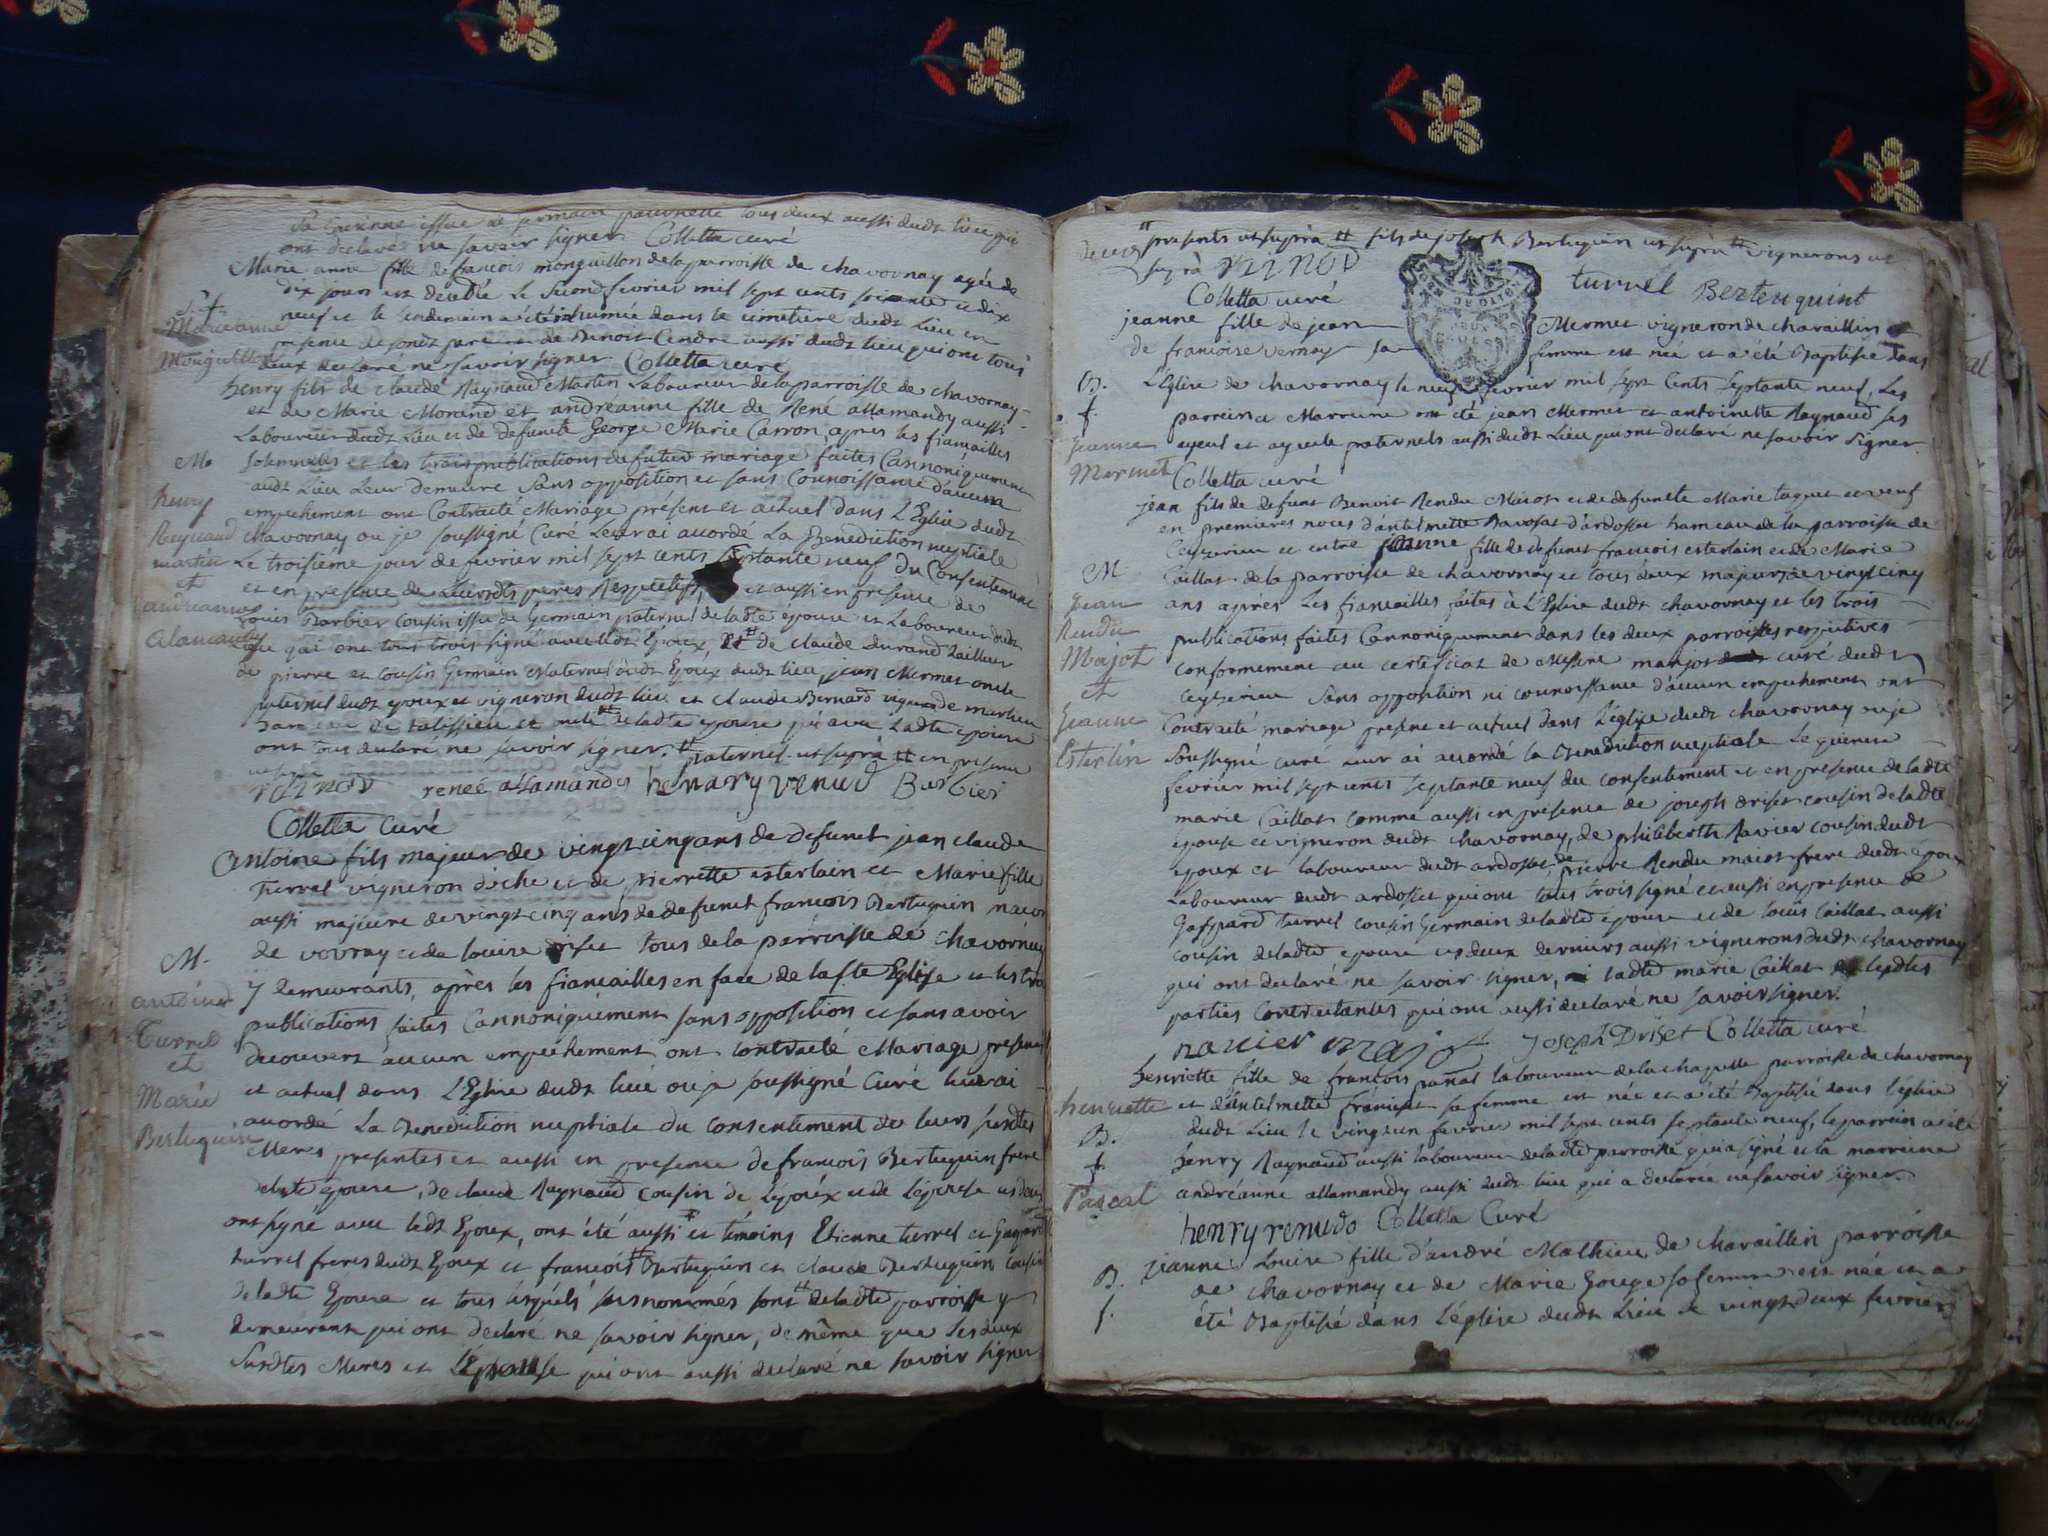 Sa Cousine issue de germain paternelle tous deux aussi dudt lieu qui
ont declaré ne savoir signer Colletta curé
Marie anne fille de francois monguillon de la parroisse de chavornay agée de
dix jours est décédée Le Second fevrier mil sept cents soixante et dix
neuf et le lendemain a été inhumée dans le cimetiere dudt Lieu en
presence de sondt pere et de Benoit Cendre aussi dudt lieu qui ont tous
deux declaré ne savoir signer Colletta curé
S. †
Marieanne
Monguillon
henry fils de claude Raynaud Martin Laboureur de la parroisse de chavornay
et de Marie Morand et andréanne fille de René allamandy aussi
Laboureur dudt Lieu et de defuncte George Marie Carron, apres les fiancailles
Solemnelles et les trois publications du futur mariage faites Cannoniquement
audt Lieu Leur demeure sans opposition et sans Connoissance d'aucun
empechement ont Contracté Mariage présent et actuel dans L'Eglise dudt
Chavornay ou je soussigné Curé Leur ai accordé La Benediction nuptiale
Le troisiéme jour de fevrier mil sept cents septante neuf du Consentement
et en presence de Leursdts peres Respectifs, et aussi en presence de
Louis Barbier Cousin issu de Germain paternel de ladte épouse et Laboureur dudt
lieu qui ont tous trois signé avec ledt Epoux, et de Claude durand tailleur
de pierre et Cousin Germain Maternel dudt Epoux dudt lieu, jean Mermet oncle
paternel dudt epoux et vigneron dudt lieu et claude Bernard vigneron de
hameau de talissieu et de ladte epouse qui avec Ladte epouse
ont tous declaré ne savoir signer. paternel ut suprà en presence
M.
henry
Reynaud
martin
et
andréanne
alamandy
renée allamandy henary renud Barbier
Colletta Curé
Antoine fils majeur de vingt cinq ans de defunct jean claude
Turrel vigneron d'oche et de pierrette esterlain et Marie fille
aussi majeure de vingt cinq ans de defunct francois Bertuquin
de vovray et de louise driset tous de la parroisse de Chavornay
y demeurants, après les fiancailles en face de la ste Eglise et les trois
publications faites Cannoniquement sans opposition et sans avoir
decouvert aucun empechement ont Contracté Mariage present
et actuel dans L'Eglise dudt lieu ou je soussigné Curé leur ai
accordé La Benediction nuptiale du consentement de leurs susdtes
Meres presentes et aussi en presence de francois Bertuquin frere
de ladte épouse, de claude Raynaud cousin de L'époux et de L'épouse
ont signé avec ledt Epoux, ont été aussi témoins Etienne turrel et Gaspard
turrel freres dudt Epoux et francois Bertuquin et claude Bertuquin cousin
de ladte Epouse et tous lesquels susnommés sont de ladte parroisse y
demeurant qui ont declaré ne savoir signer, de même que Les deux
Susdtes Meres et L'Epouse qui ont aussi declaré ne savoir signer
M.
antoine
Turrel
et
Marie
Bertuquin
presents ut suprà fils de joseph Bertuquin ut suprà vignerons ut
suprà turrel Bertenquint
Colletta curé
jeanne fille de jean Mermet vigneron de chavaillin et
de francoise vernay sa femme est née et a été Baptisée dans
L'Eglise de chavornay le neuf fevrier mil sept Cents septante neuf, Les
parrein et Marreine ont été jean Mermet et antoinette Raynaud ses
ayeul et ayeule paternels aussi dudt Lieu qui ont declaré ne savoir Signer.
Colletta curé
B.
f.
Jeanne
Mermet
jean fils de defunt Benoit Rendu Maiot et de defuncte Marie taquet et veuf
en premieres noces d'antelmette d'ardosset hameau de la parroisse de
Ceyzerieu et entre jeanne fille de defunct francois esterlain et de Marie
Caillat de la parroisse de chavornay et tous deux majeurs de vingt cinq
ans apres Les fiancailles faites à L'Eglise dudt chavornay et les trois
publications faites Cannoniquement dans les deux parroisses respectives
conformement au certificat de Messire marjot curé dudt
Ceyzerieu Sans opposition ni connoissance d'aucun empechement ont
Contracté mariage present et actuel dans L'église dudt chavornay ou je
Soussigné curé leur ai accordé la Benediction nuptiale Le quinze
fevrier mil sept cents septante neuf du consentement et en presence de ladte
marie Caillat comme aussi en presence de joseph driset cousin de ladte
épouse et vigneron dudt chavornay, de philiberth Ravier cousin dudt
epoux et laboureur dudt ardosset, de pierre Rendu maiot frere dudt epoux
Laboureur dudt ardosset qui ont tous trois signé et aussi en presence de
Gaspard turrel cousin Germain de ladte épouse et de louis Caillat aussi
cousin de ladte epouse ces deux derniers aussi vignerons dudt chavornay
qui ont declaré ne savoir signer, ni ladte marie Caillat ni lesdtes
parties Contractantes qui ont aussi declaré ne savoir signer.
ravier majot Joseph Driset Colletta curé
M.
Jean
Rendu
Majot
et
Jeanne
Esterlin
henriette fille de francois pascal laboureur de la chapelle parroisse de chavornay
et d'antelmette sa femme est née et a été Baptisée dans l'église
dudt Lieu le vingt un fevrier mil sept cents septante neuf, le parrein a été
henry Raynaud aussi laboureur de ladte parroisse qui a signé et la marreine
andréanne allamandy aussi dudt lieu qui a declaré ne savoir signer.
henry renudo Colletta Curé
henriette
B.
f.
Pascal
jeanne Louise fille d'andré Mathieu de chavaillin parroisse
de chavornay et de Marie Gouge sa femme est née et a
été Baptisée dans L'église dudt Lieu le vingt deux fevrier
B.
f.